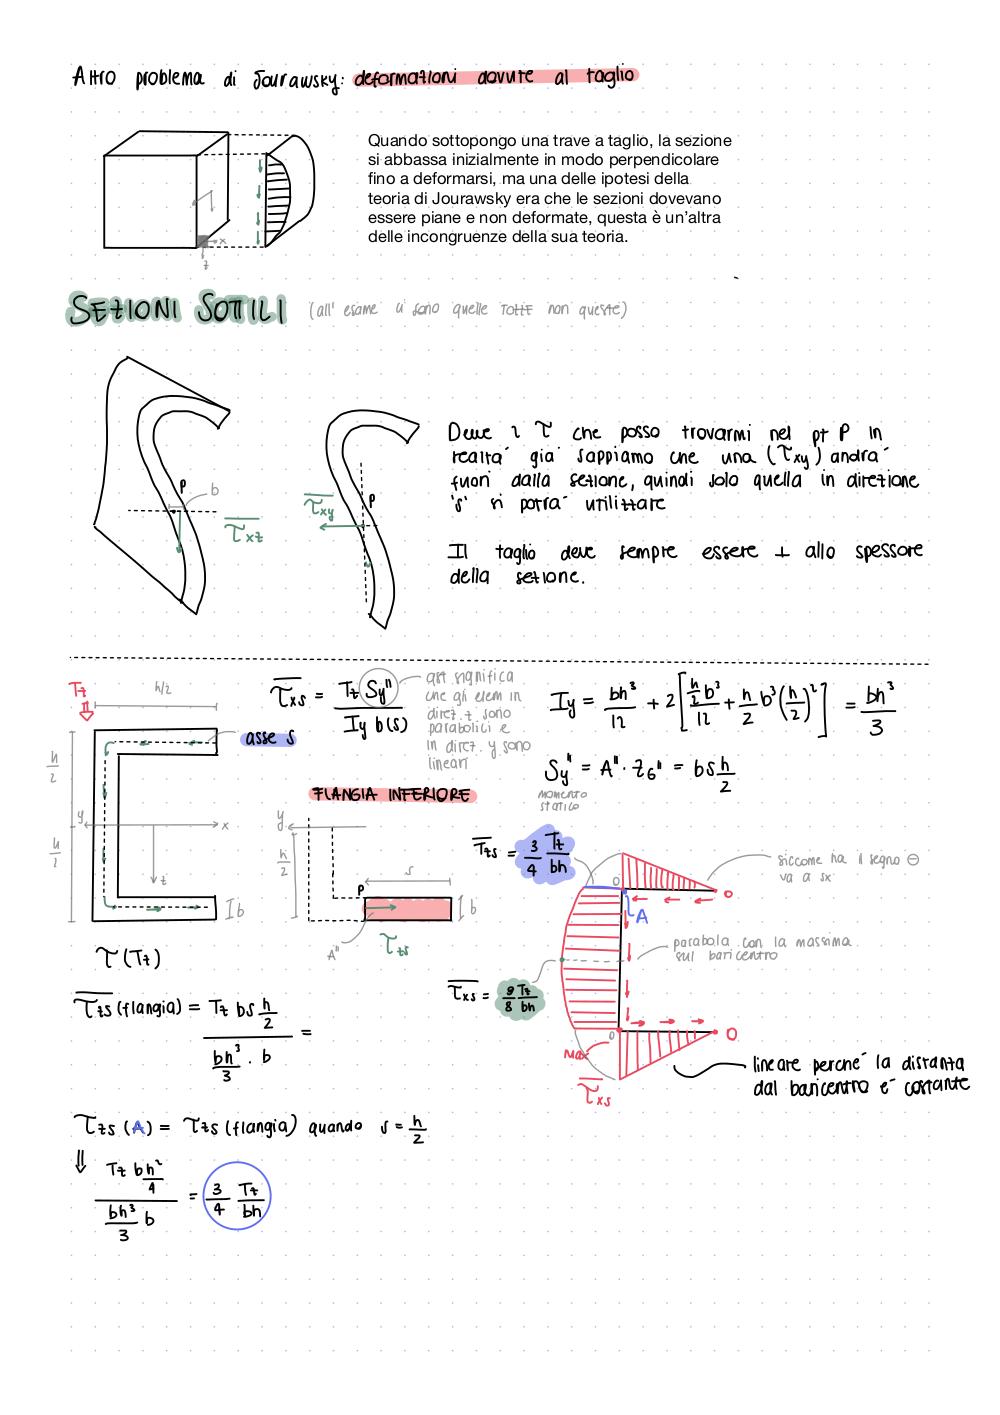 Altro problema di Jourawsky: deformazioni dovute al taglio
Quando sottopongo una trave a taglio, la sezione
si abbassa inizialmente in modo perpendicolare
fino a deformarsi, ma una delle ipotesi della
teoria di Jourawsky era che le sezioni dovevano
essere piane e non deformate, questa è un'altra
delle incongruenze della sua teoria.
x
z
SEZIONI SOTTILI (all' esame ci sono quelle TOTTE non queste)
Delle 2 τ che posso trovarmi nel pt P in
realtà già sappiamo che una (τxy) andrà
fuori dalla sezione, quindi solo quella in direzione
's' si potrà utilizzare
P
b
τxz
τxy
P
Il taglio deve sempre essere ⊥ allo spessore
della sezione.
Tz
h/2
τxs = Tz Sy" / Iy b(s)
qst significa
che gli elem in
direz. z sono
parabolici e
in direz. y sono
lineari
Iy = bh³/12 + 2[h/2 b³/12 + h/2 b³(h/2)²] = bh³/3
asse s
Sy" = A" · zG" = bs h/2
momento
statico
h/2
h/2
y
x
z
b
FLANGIA INFERIORE
y
h/2
s
P
b
A"
τzs
τzs = 3/4 Tz/bh
siccome ha il segno ⊖
va a sx
0
0
A
parabola con la massima
sul baricentro
τxs = 9/8 Tz/bh
0
0
Max
τxs
lineare perché la distanza
dal baricentro è costante
τ(Tz)
τzs (flangia) = Tz bs h/2 / bh³/3 · b =
τzs (A) = τzs (flangia) quando s = h/2
⇓
Tz b h²/4 / bh³/3 b = 3/4 Tz/bh